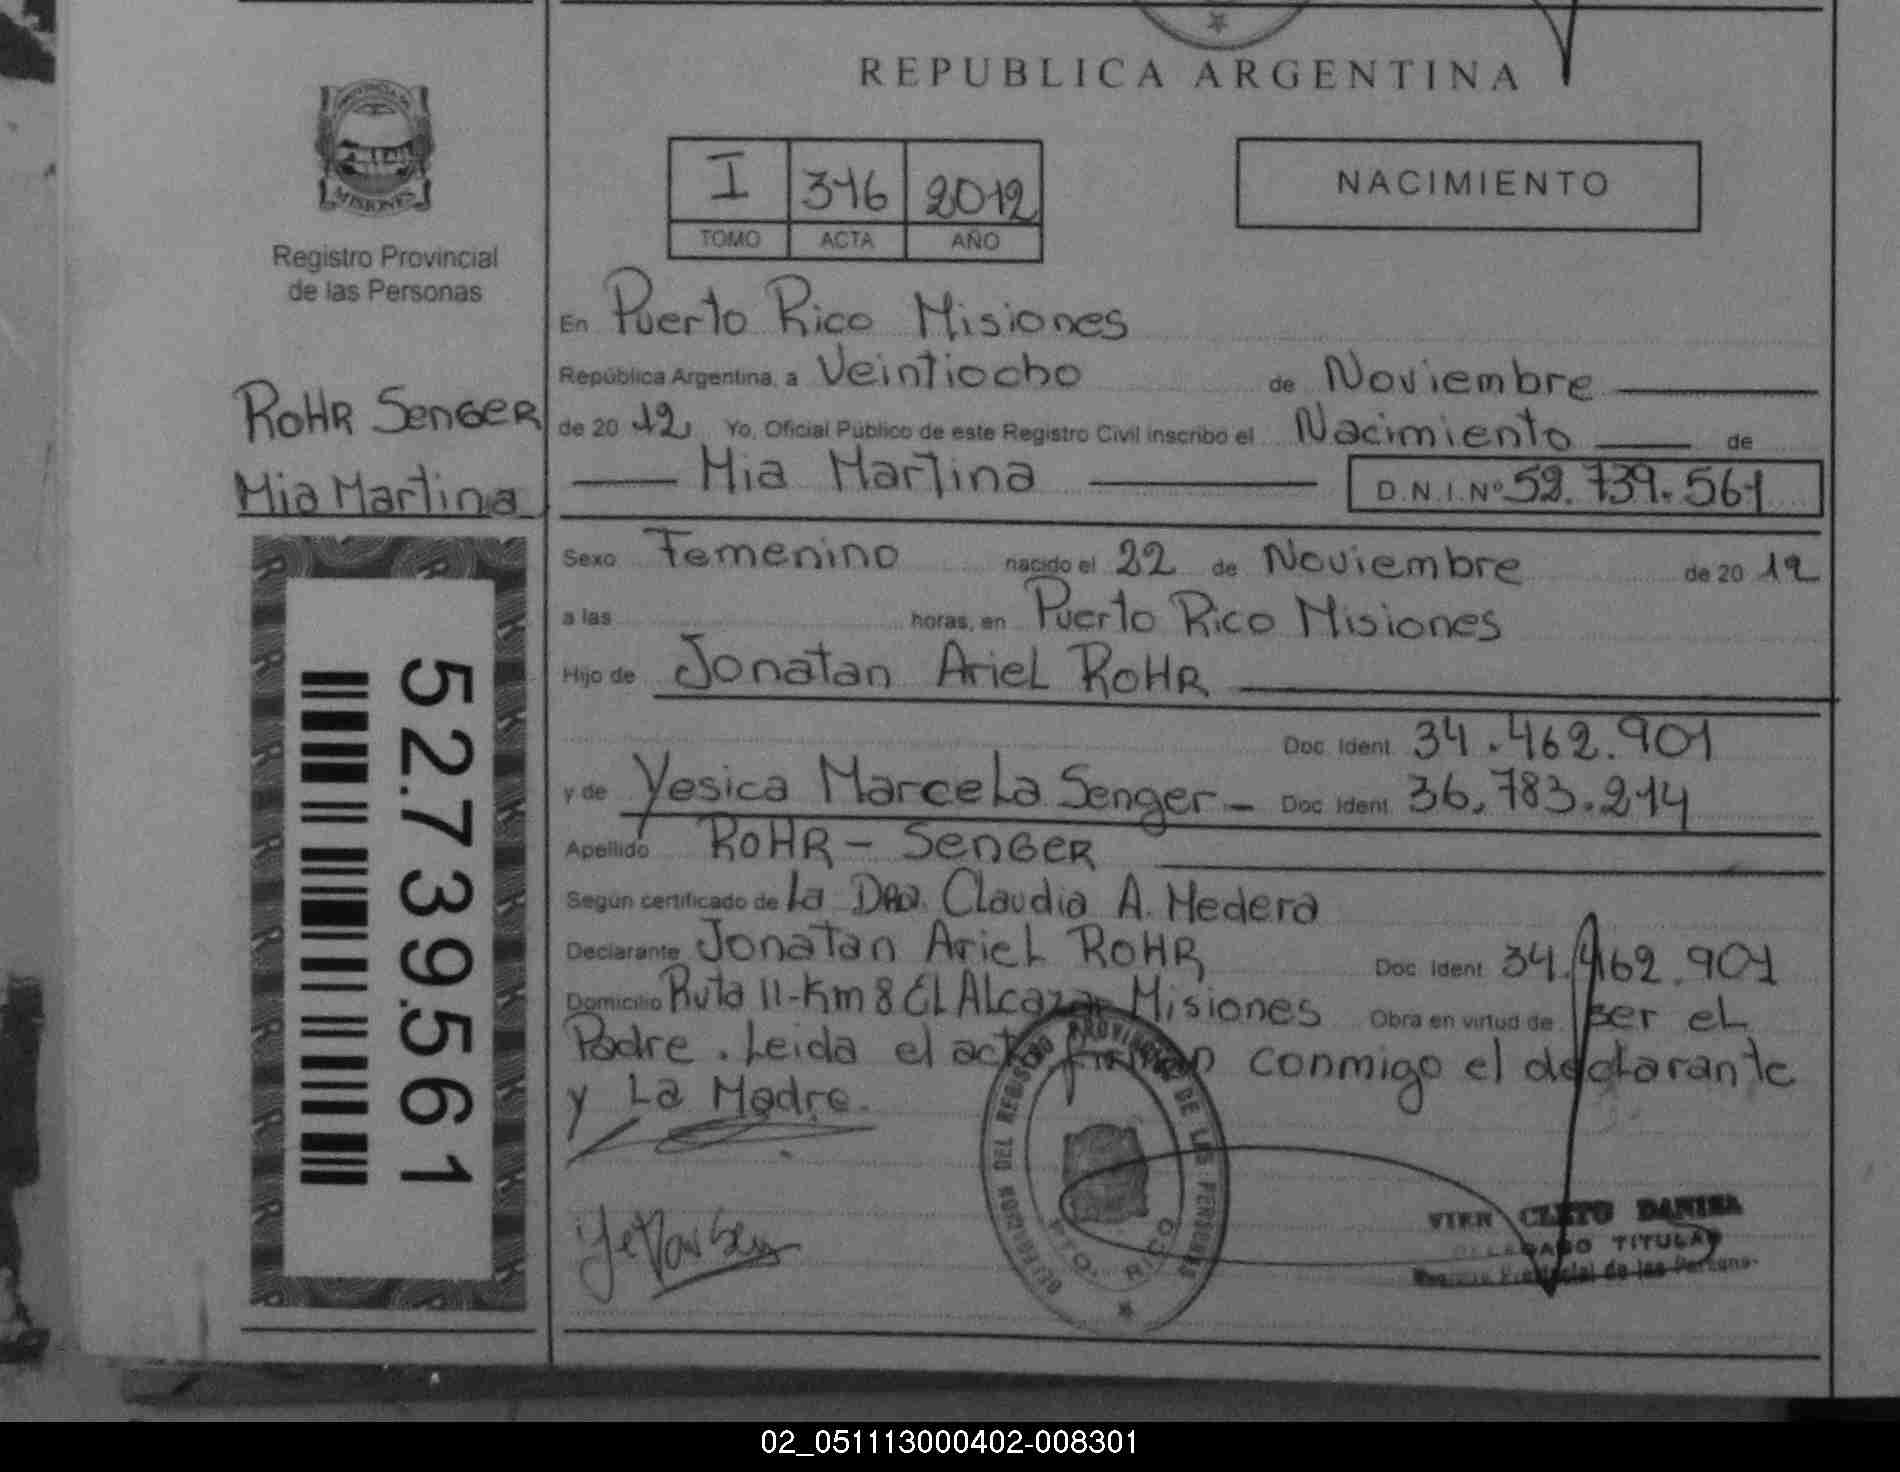 REPUBLICA ARGENTINA
PROVINCIA DE
MISIONES
Registro Provincial
de las Personas
I 346 2012
TOMO ACTA AÑO
NACIMIENTO
En Puerto Rico Misiones
República Argentina, a Veintiocho de Noviembre
de 2012 Yo, Oficial Público de este Registro Civil inscribo el Nacimiento de
Mia Martina D.N.I.Nº 52.739.561
RoHR SenGER
Mia Martina
52.739.561
Sexo Femenino nacido el 22 de Noviembre de 2012
a las horas, en Puerto Rico Misiones
Hijo de Jonatan Ariel RoHR
Doc. Ident. 34.462.901
y de Yesica Marcela Senger - Doc. Ident. 36.783.214
Apellido RoHR - SenGER
Según certificado de La DRa. Claudia A. Medera
Declarante Jonatan Ariel RoHR Doc. Ident. 34.462.901
Domicilio Ruta 11-Km 8 El Alcazar Misiones Obra en virtud de ser el
Padre. Leida el acta firman conmigo el declarante
y La Madre.
DEL REGISTRO PROVINCIAL DE LAS PERSONAS
PTO. RICO
CLETO
TITULAR
Provincial de las Personas
02_051113000402-008301